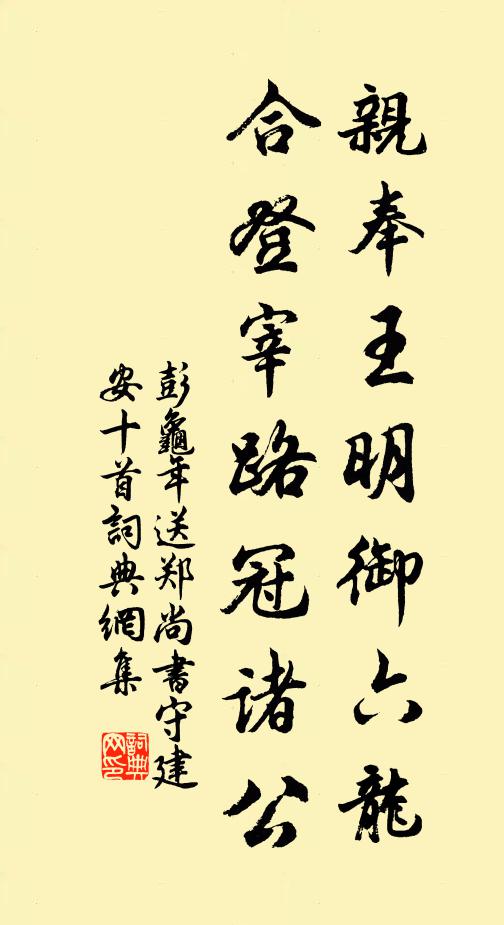 親奉王明御六龍
合登宰路冠諸公
彭龜年送郑尚書守建
安十首詞典網集
詞典
网印